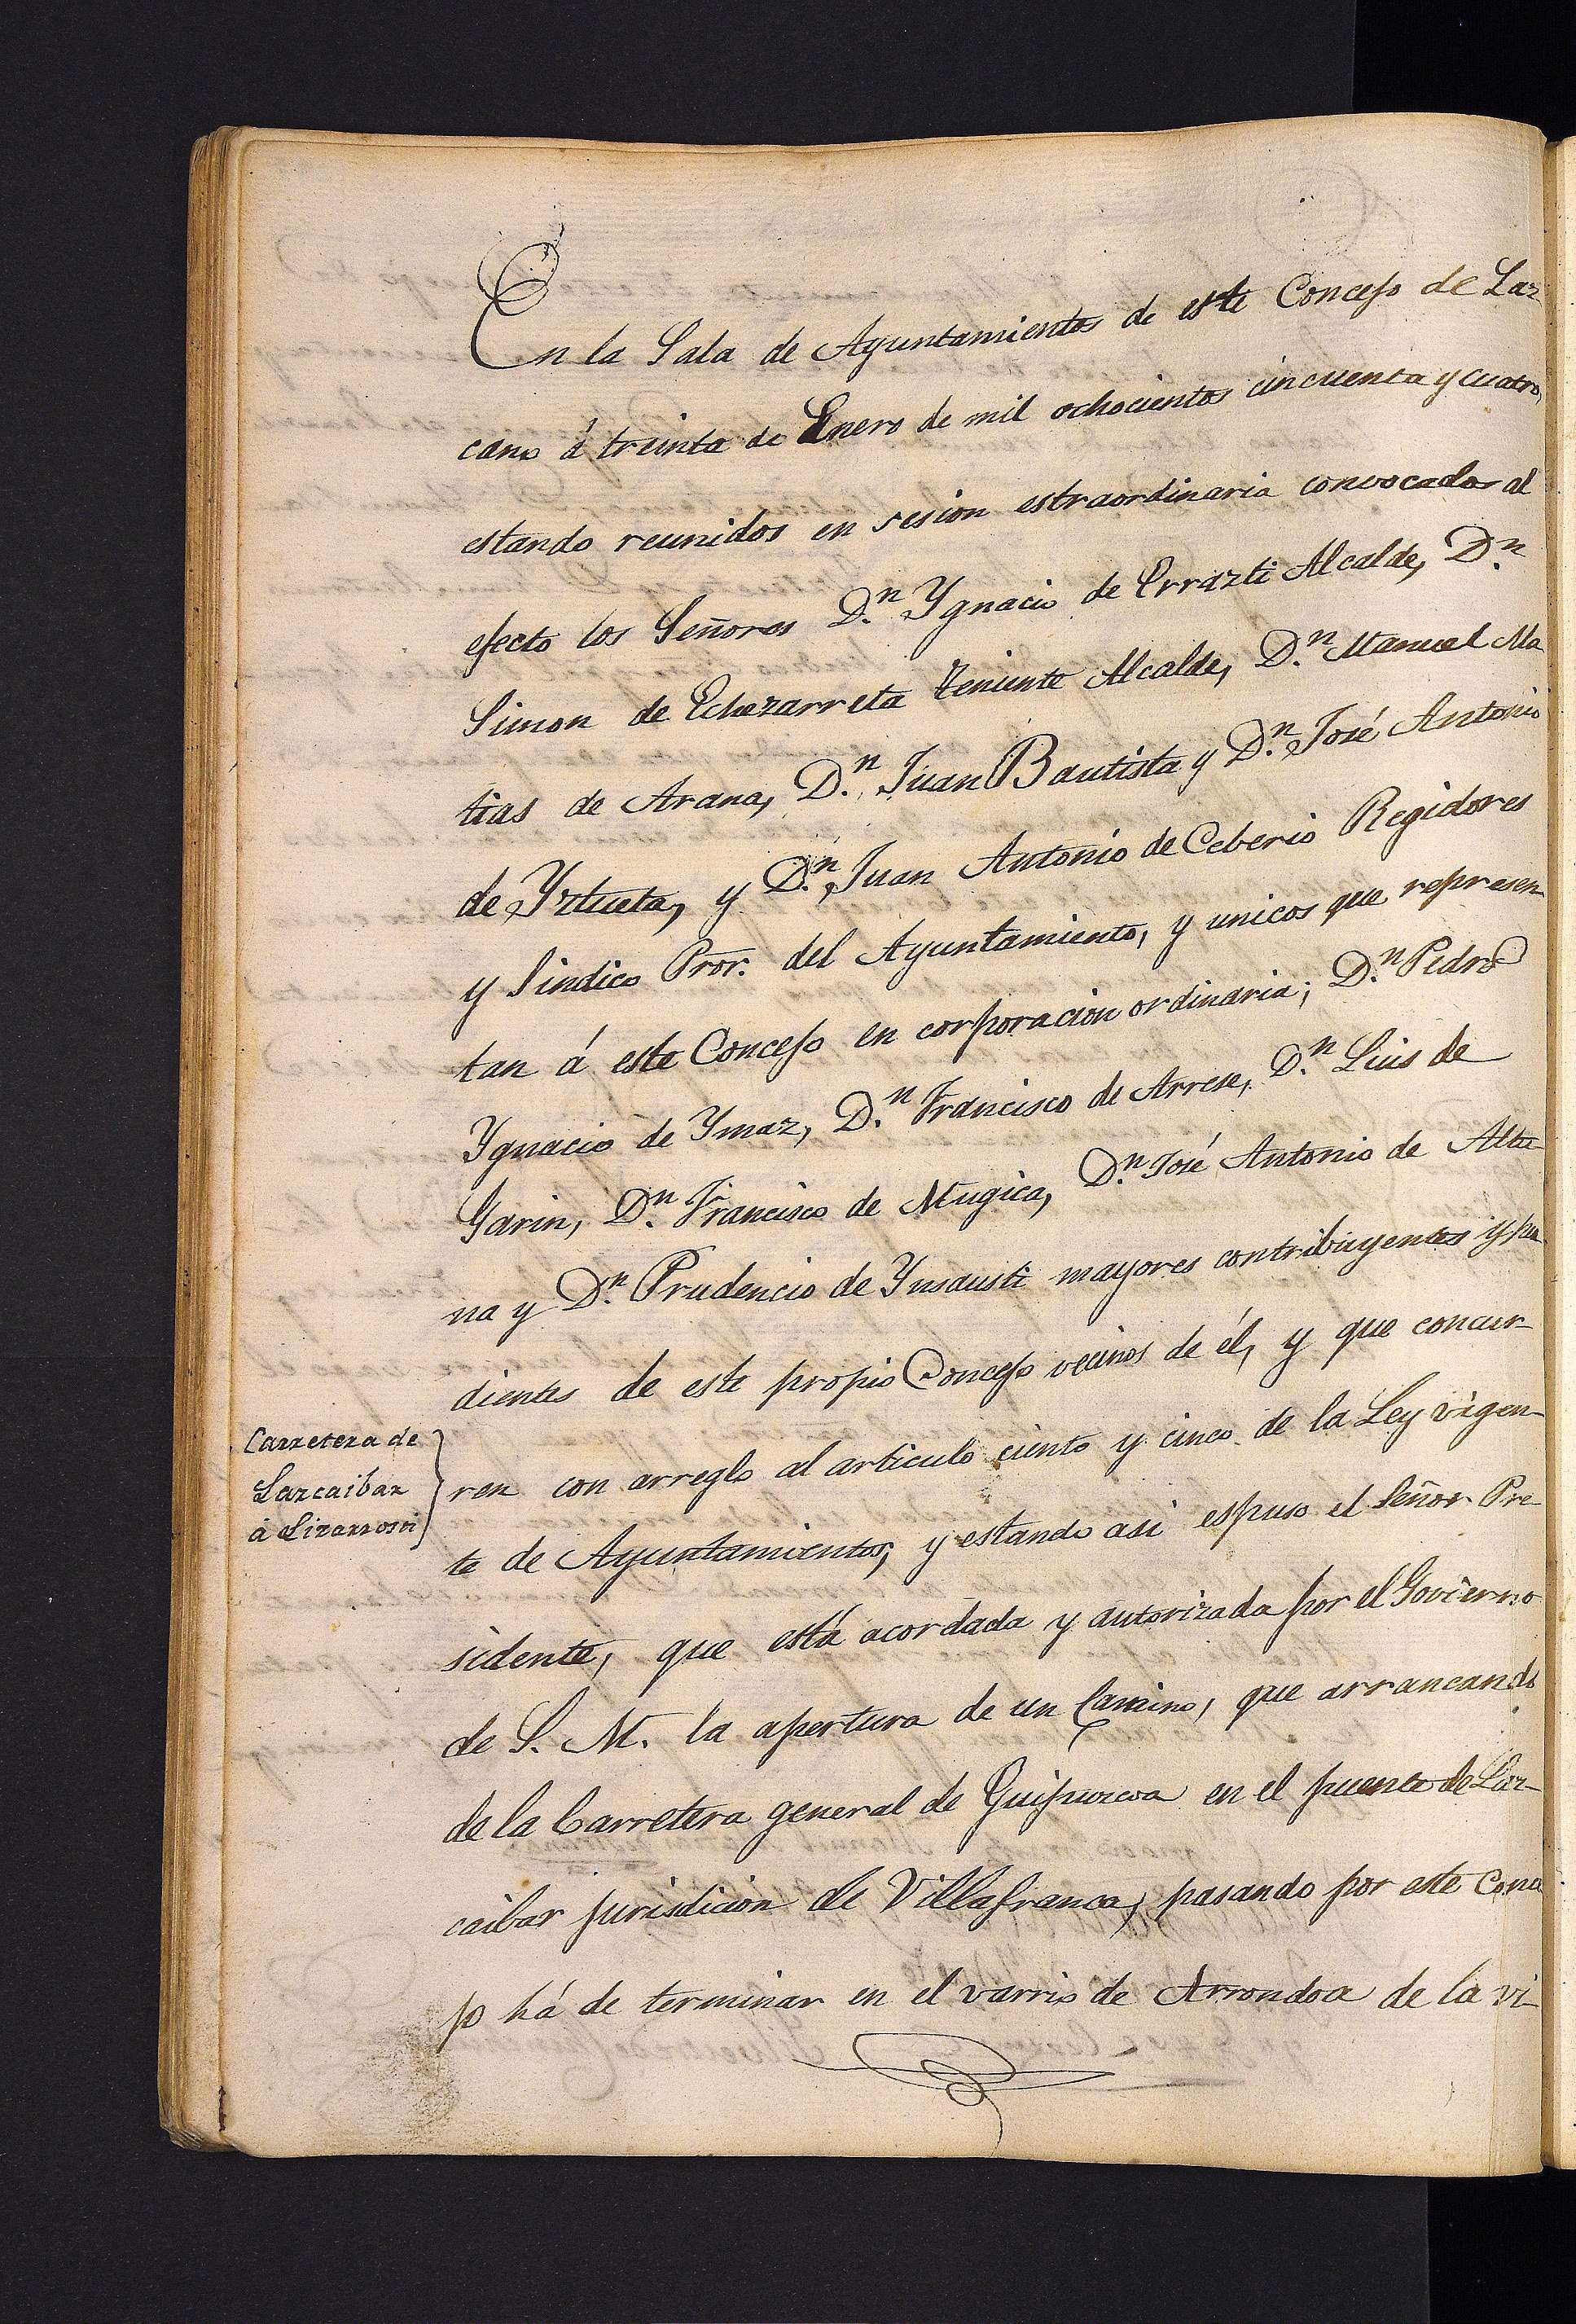 En la Sala de Ayuntamientos de este Concejo de Laz
cano á treinta de Enero de mil ochocientos cincuenta y cuatro,
estando reunidos en sesion estraordinaria convocados al
efecto los Señores D.n Ygnacio de Errazti Alcalde, D.n
Simon de Echezarreta Teniente Alcalde, D.n Manuel Ma
tias de Arana, D.n Juan Bautista y D.n José Antonio
de Yztueta, y D.n Juan Antonio de Ceberio Regidores
y Sindico Pror. del Ayuntamiento, y unicos que represen
tan á este Concejo en corporacion ordinaria; D.n Pedro
Ygnacio de Ymaz, D.n Francisco de Arrese, D.n Luis de
Garin, D.n Francisco de Mugica, D.n José Antonio de Altu-
na y D.n Prudencio de Ynsausti mayores contribuyentes y pu
dientes de este propio Concejo vecinos de él, y que concur-
Carretera de
Lazcaibar
á Lizarrosti
ren con arreglo al articulo ciento y cinco de la Ley vigen-
te de Ayuntamientos, y estando asi espuso el Señor Pre-
sidente, que está acordada y autorizada por el Govierno
de S. M. la apertura de un Camino, que arrancando
de la Carretera general de Guipuzcoa en el puente de Laz-
caibar jurisdicion de Villafranca, pasando por este Conce
jo há de terminar en el varrio de Arrondoa de la vi-